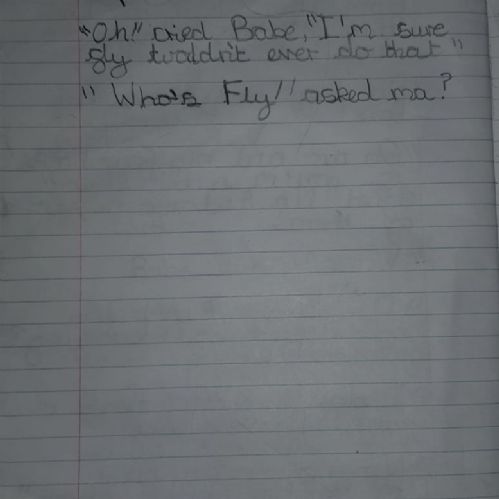 "Oh!" cried Babe, "I'm sure
fly wouldn't ever do that"
"Who's Fly" asked ma?